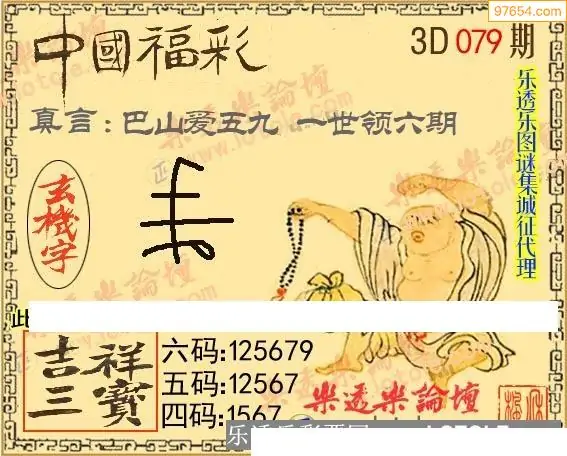 97654.com
中國福彩
3D 079 期
真言:巴山爱五九 一世领六期
玄機字
乐透乐图谜集城征代理
此
吉祥三寶
六码:125679
五码:12567
四码:1567
樂透樂論壇